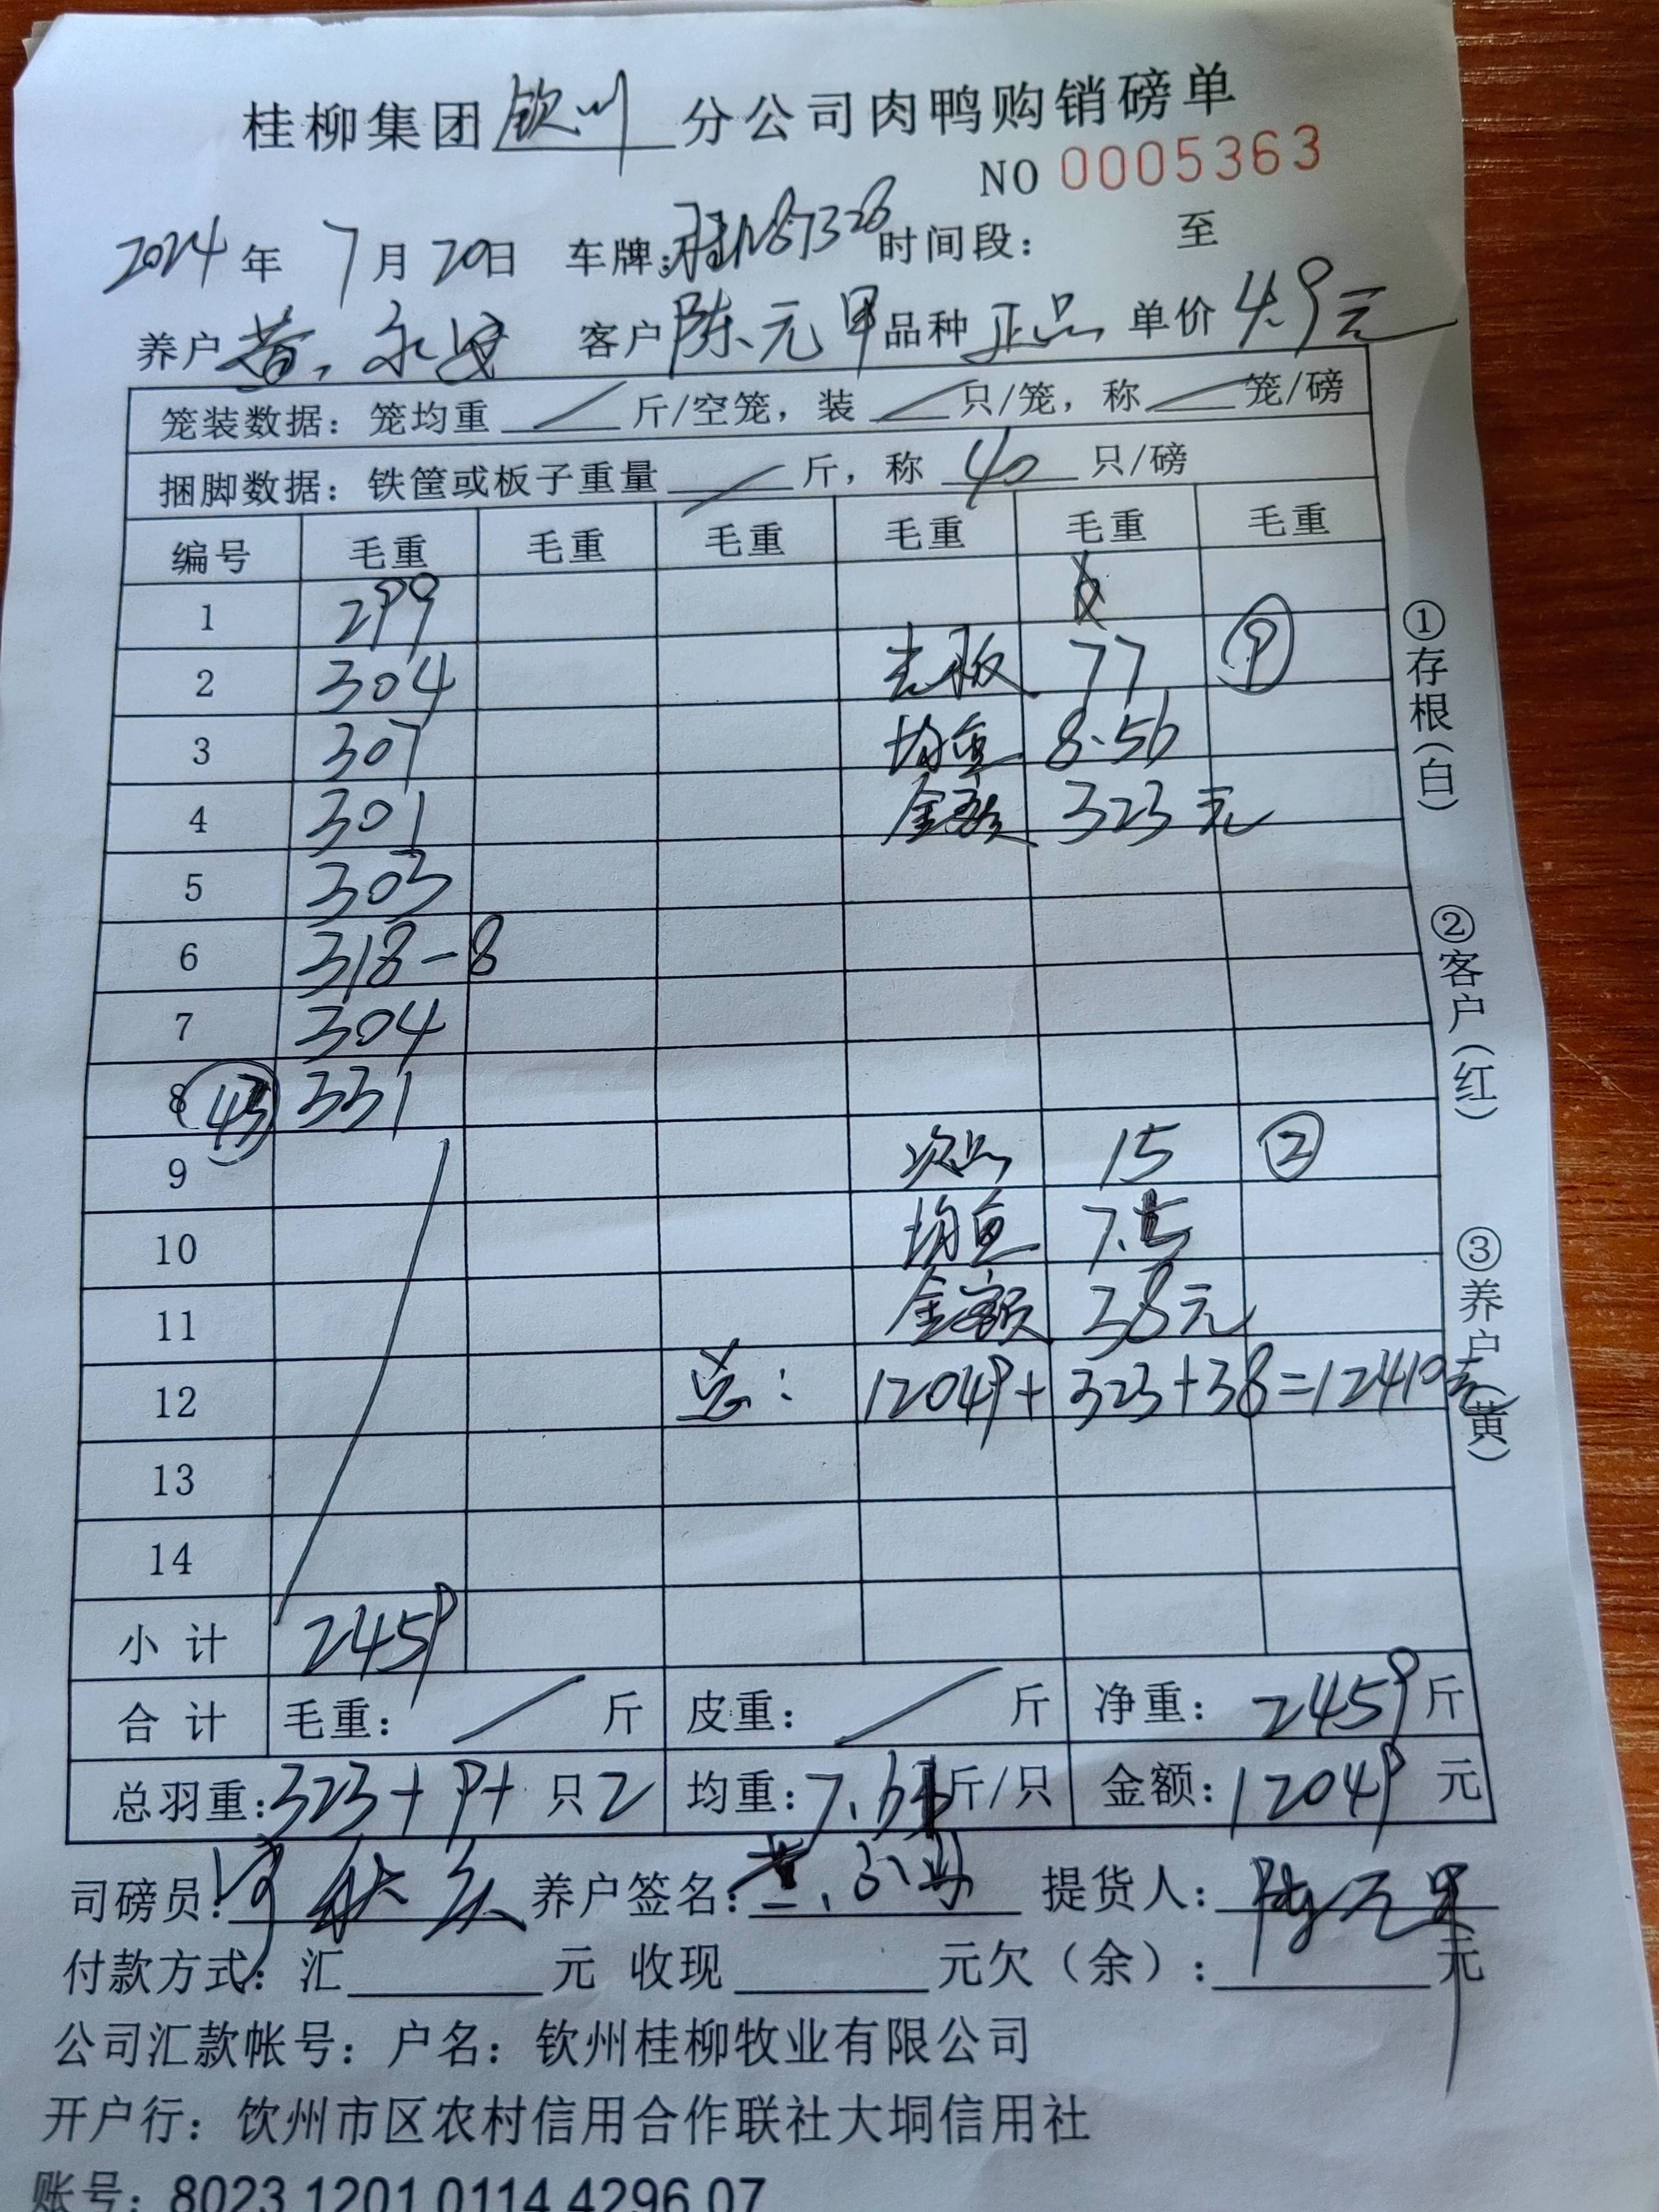 桂柳集团 钦州 分公司肉鸭购销磅单
NO 0005363
2024 年 7 月 20 日 车牌: 时间段: 至
养户 黄 永 客户 陈元甲 品种 正品 单价 4.9元
笼装数据: 笼均重 / 斤/空笼, 装 / 只/笼, 称 / 笼/磅
捆脚数据: 铁筐或板子重量 / 斤, 称 40 只/磅
编号 毛重 毛重 毛重 毛重 毛重 毛重
1 299
2 304 老板 77 ⑨
3 307 均重 8.56
4 301 金额 323 元
5 303
6 318-8
7 304
8 331
9 次品 15 ②
10 均重 7.5
11 金额 38元
12 总: 12049+323+38=12410元
13
14
小 计 2459
合 计 毛重: / 斤 皮重: / 斤 净重: 2459 斤
总羽重: 323+9+ 只 2 均重: 7.6 斤/只 金额: 12049 元
司磅员: 养户签名: 黄 提货人: 陈元甲
付款方式: 汇 元 收现 元欠(余): 元
公司汇款帐号: 户名: 钦州桂柳牧业有限公司
开户行: 钦州市区农村信用合作联社大垌信用社
账号: 8023 1201 0114 4296 07
①存根(白)
②客户(红)
③养户(黄)